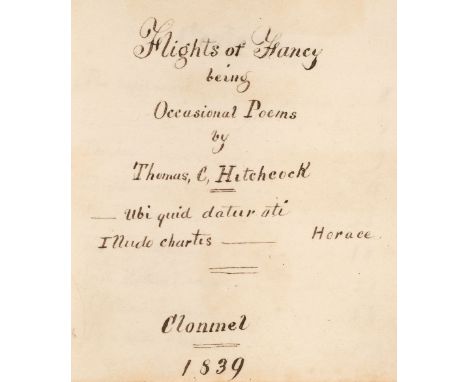 Flights of Fancy
being
Occasional Poems
by
Thomas, C, Hitchcock
— Ubi quid datur oti
Illudo chartis — Horace.
Clonmel
1839